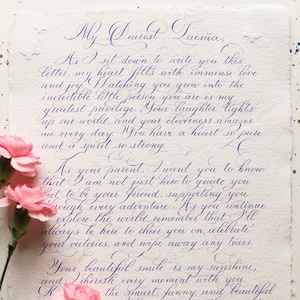 My Dearest
As I sit down to write you this
letter, my heart fills with immense love
and joy. Watching you grow into the
incredible little person you are is my
greatest privilege. Your laughter lights
up our world, and your cleverness amazes
me every day. You have a heart so pure
and a spirit so strong.
As your parent, I want you to know
that I am not just here to guide you
but to be your friend, supporting you
through every adventure. As you continue
to explore the world, remember that I'll
always be here to cheer you on, celebrate
your victories, and wipe away any tears.
Your beautiful smile is my sunshine,
and I cherish every moment with you.
the smart, funny, and beautiful